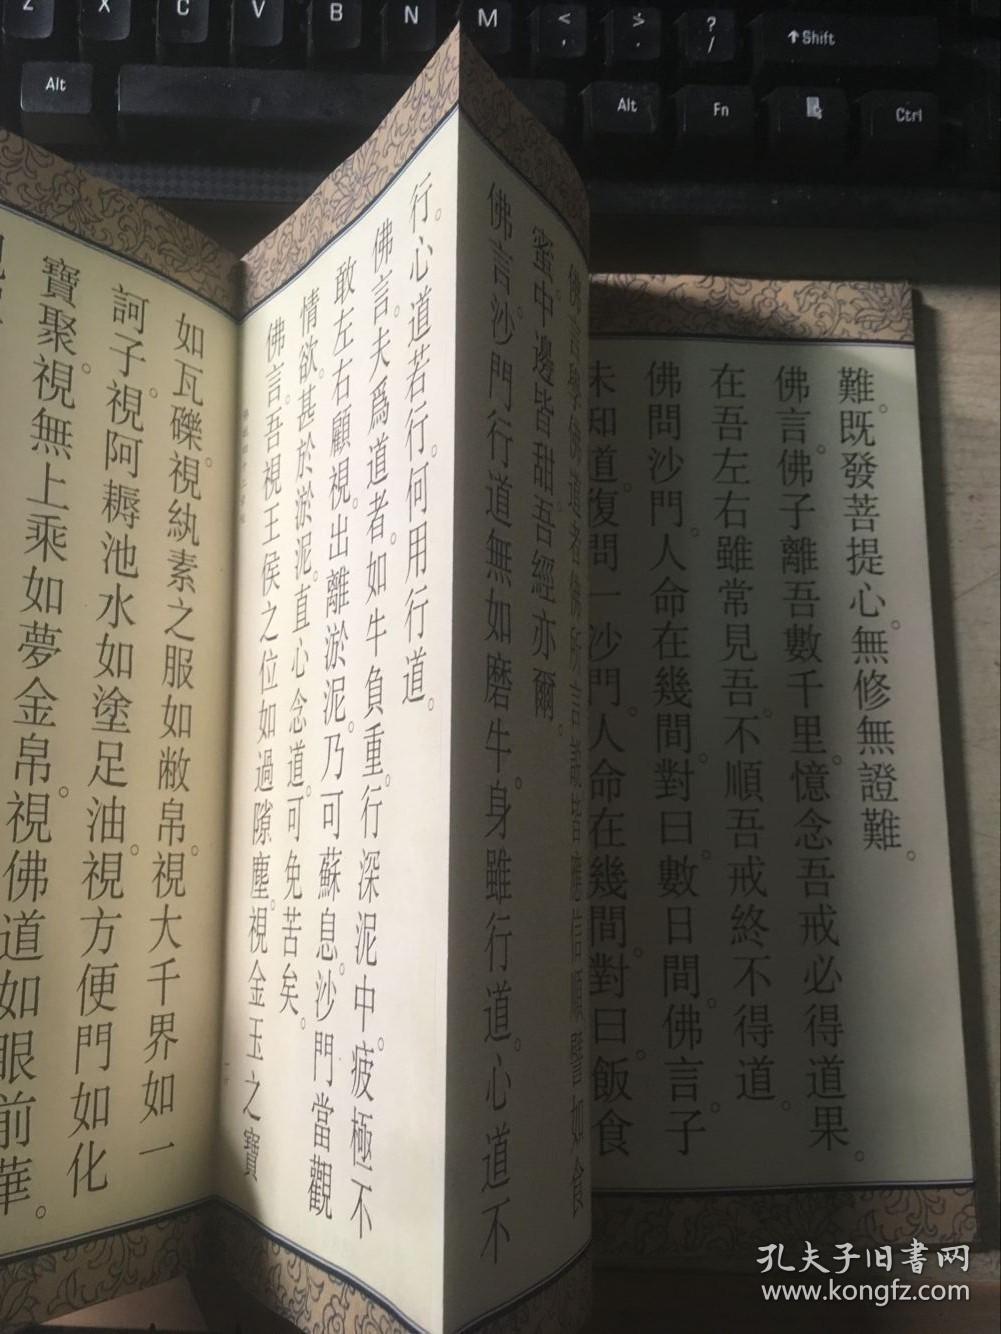 難。既發菩提心。無修無證難。
佛言。佛子離吾數千里。憶念吾戒必得道果。
在吾左右雖常見吾。不順吾戒終不得道。
佛問沙門。人命在幾間。對曰。數日間。佛言。子
未知道。復問一沙門。人命在幾間。對曰。飯食
佛言學佛道者佛所言說皆應信順譬如食
蜜。中邊皆甜吾經亦爾。
佛言。沙門行道無如磨牛。身雖行道。心道不
行。心道若行。何用行道。
佛言。夫爲道者。如牛負重。行深泥中。疲極不
敢左右顧視。出離淤泥。乃可蘇息。沙門當觀
情欲。甚於淤泥。直心念道。可免苦矣。
佛言。吾視王侯之位如過隙塵。視金玉之寶
如瓦礫。視紈素之服如敝帛。視大千界如一
訶子。視阿耨池水如塗足油。視方便門如化
寶聚。視無上乘如夢金帛。視佛道如眼前華。
Z X C V B N M < , > . ? / Shift
Alt Alt Fn Ctrl
孔夫子旧書网
www.kongfz.com